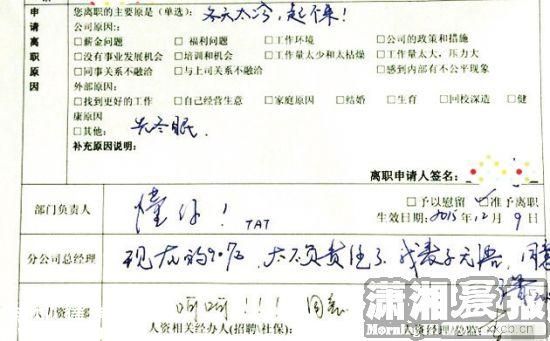 申请离职原因
您离职的主要原是(单选): 冬天太冷,起不来!
公司原因:
□薪金问题 □福利问题 □工作环境 □公司的政策和措施
□没有事业发展机会 □培训和机会 □工作量太少和太枯燥 □工作量太大,压力大
□同事关系不融洽 □与上司关系不融洽 □感到内部有不公平现象
外部原因:
□找到更好的工作 □自己经营生意 □家庭原因 □结婚 □生育 □回校深造 □健
康原因
□其他: 先冬眠.
补充原因说明:
离职申请人签名:
部门负责人 懂你! TAT □予以慰留 准予离职
生效日期:2015年12月9日
分公司总经理 现在的90后,太不负责任了,我表示无语,同意
人力资源部 呵呵!!! 同意
人资相关经办人(招聘\社保): 人资经理/总监:
潇湘晨报